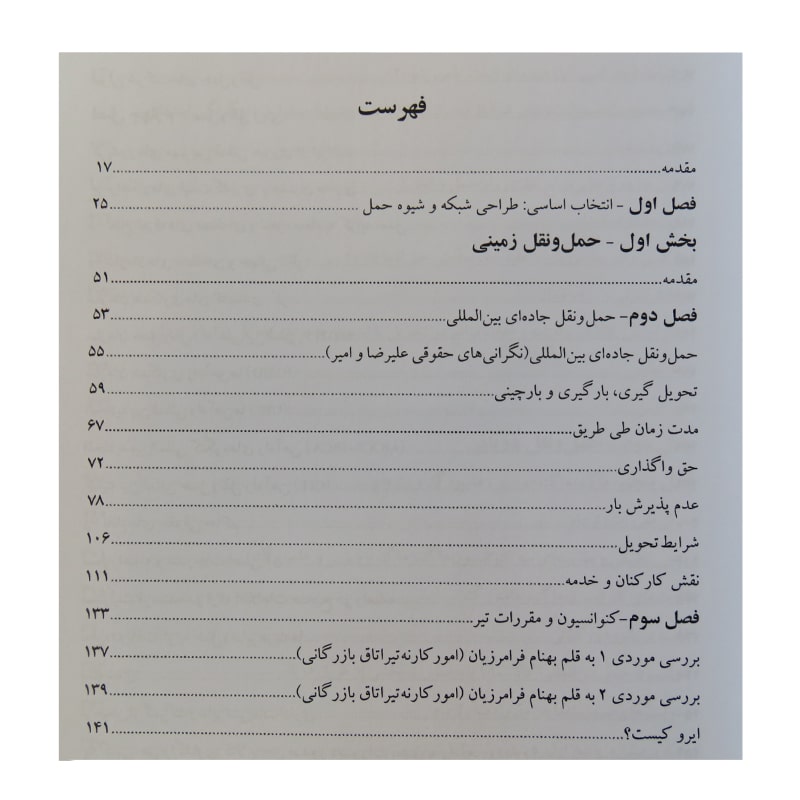 فهرست
مقدمه......۱۷
فصل اول - انتخاب اساسی: طراحی شبکه و شیوه حمل ......۲۵
بخش اول - حمل‌ونقل زمینی
مقدمه......۵۱
فصل دوم- حمل‌ونقل جاده‌ای بین‌المللی......۵۳
حمل‌ونقل جاده‌ای بین‌المللی(نگرانی‌های حقوقی علیرضا و امیر)......۵۵
تحویل گیری، بارگیری و بارچینی......۵۹
مدت زمان طی طریق......۶۷
حق واگذاری......۷۲
عدم پذیرش بار......۷۸
شرایط تحویل......۱۰۶
نقش کارکنان و خدمه......۱۱۱
فصل سوم-کنوانسیون و مقررات تیر......۱۳۳
بررسی موردی ۱ به قلم بهنام فرامرزیان (امورکارنه‌تیراتاق بازرگانی)......۱۳۷
بررسی موردی ۲ به قلم بهنام فرامرزیان (امورکارنه‌تیراتاق بازرگانی)......۱۳۹
ایرو کیست؟......۱۴۱